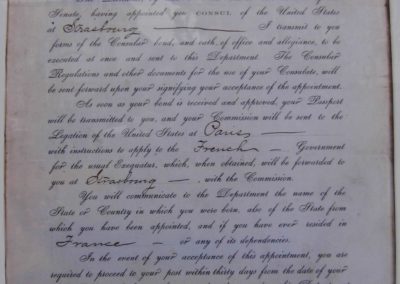 Senate, having appointed you CONSUL of the United States
at Strasbourg I transmit to you
forms of the Consular bond, and oath of office and allegiance, to be
executed at once and sent to this Department. The Consular
Regulations and other documents for the use of your Consulate, will
be sent forward upon your signifying your acceptance of the appointment.
As soon as your bond is received and approved, your Passport
will be transmitted to you, and your Commission will be sent to the
Legation of the United States at Paris —
with instructions to apply to the French — Government
for the usual Exequatur, which, when obtained, will be forwarded to
you at Strasbourg —, with the Commission.
You will communicate to the Department the name of the
State or Country in which you were born, also of the State from
which you have been appointed, and if you have ever resided in
France — or any of its dependencies.
In the event of your acceptance of this appointment, you are
required to proceed to your post within thirty days from the date of your